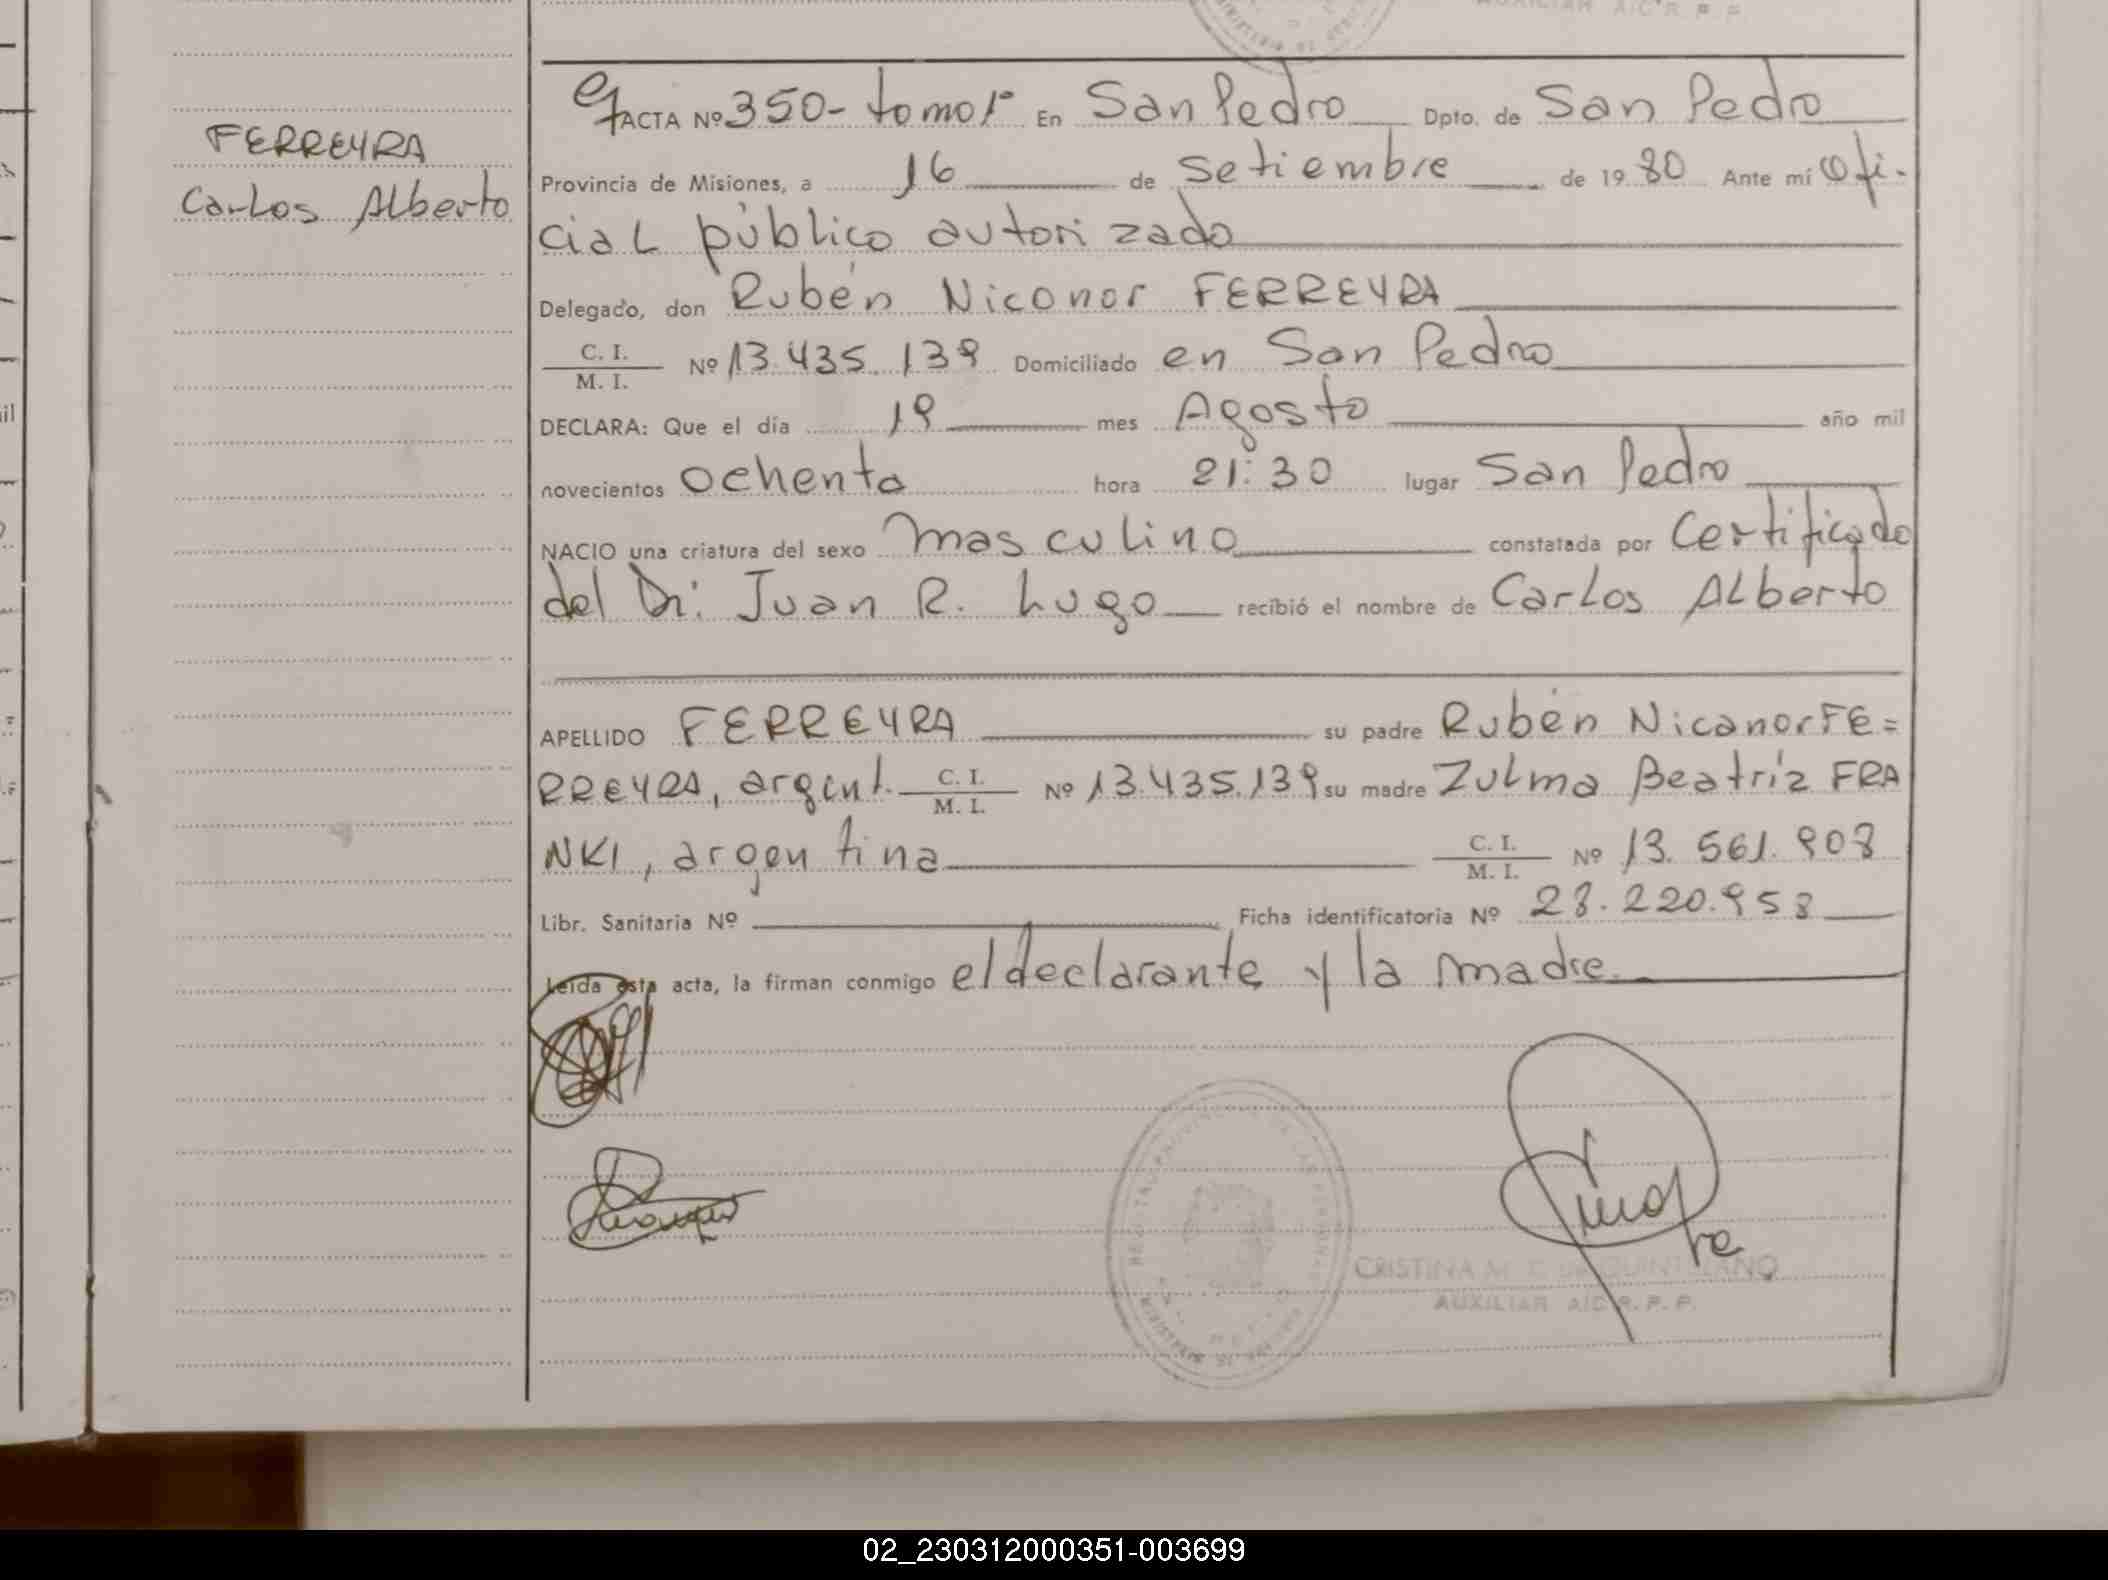 AUXILIAR A/C R. P. P.
FERREYRA
Carlos Alberto
ACTA Nº 350- tomo 1º En San Pedro Dpto. de San Pedro
Provincia de Misiones, a 16 de Setiembre de 19 80 Ante mí Ofi-
cial público autorizado
Delegado, don Rubén Niconor FERREYRA
C. I.
M. I. Nº 13.435.139 Domiciliado en San Pedro
DECLARA: Que el día 19 mes Agosto año mil
novecientos ochenta hora 21:30 lugar San Pedro
NACIO una criatura del sexo masculino constatada por Certificado
del Dr. Juan R. Lugo recibió el nombre de Carlos Alberto
APELLIDO FERREYRA su padre Rubén Nicanor FE=
RREYRA, argent. C. I. M. I. Nº 13.435.139 su madre Zulma Beatríz FRA
NKI, argentina C. I. M. I. Nº 13.561.908
Libr. Sanitaria Nº Ficha identificatoria Nº 28.220.958
Leída esta acta, la firman conmigo el declarante y la madre
CRISTINA M. QUINTANO
AUXILIAR A/C R. P. P.
02_230312000351-003699